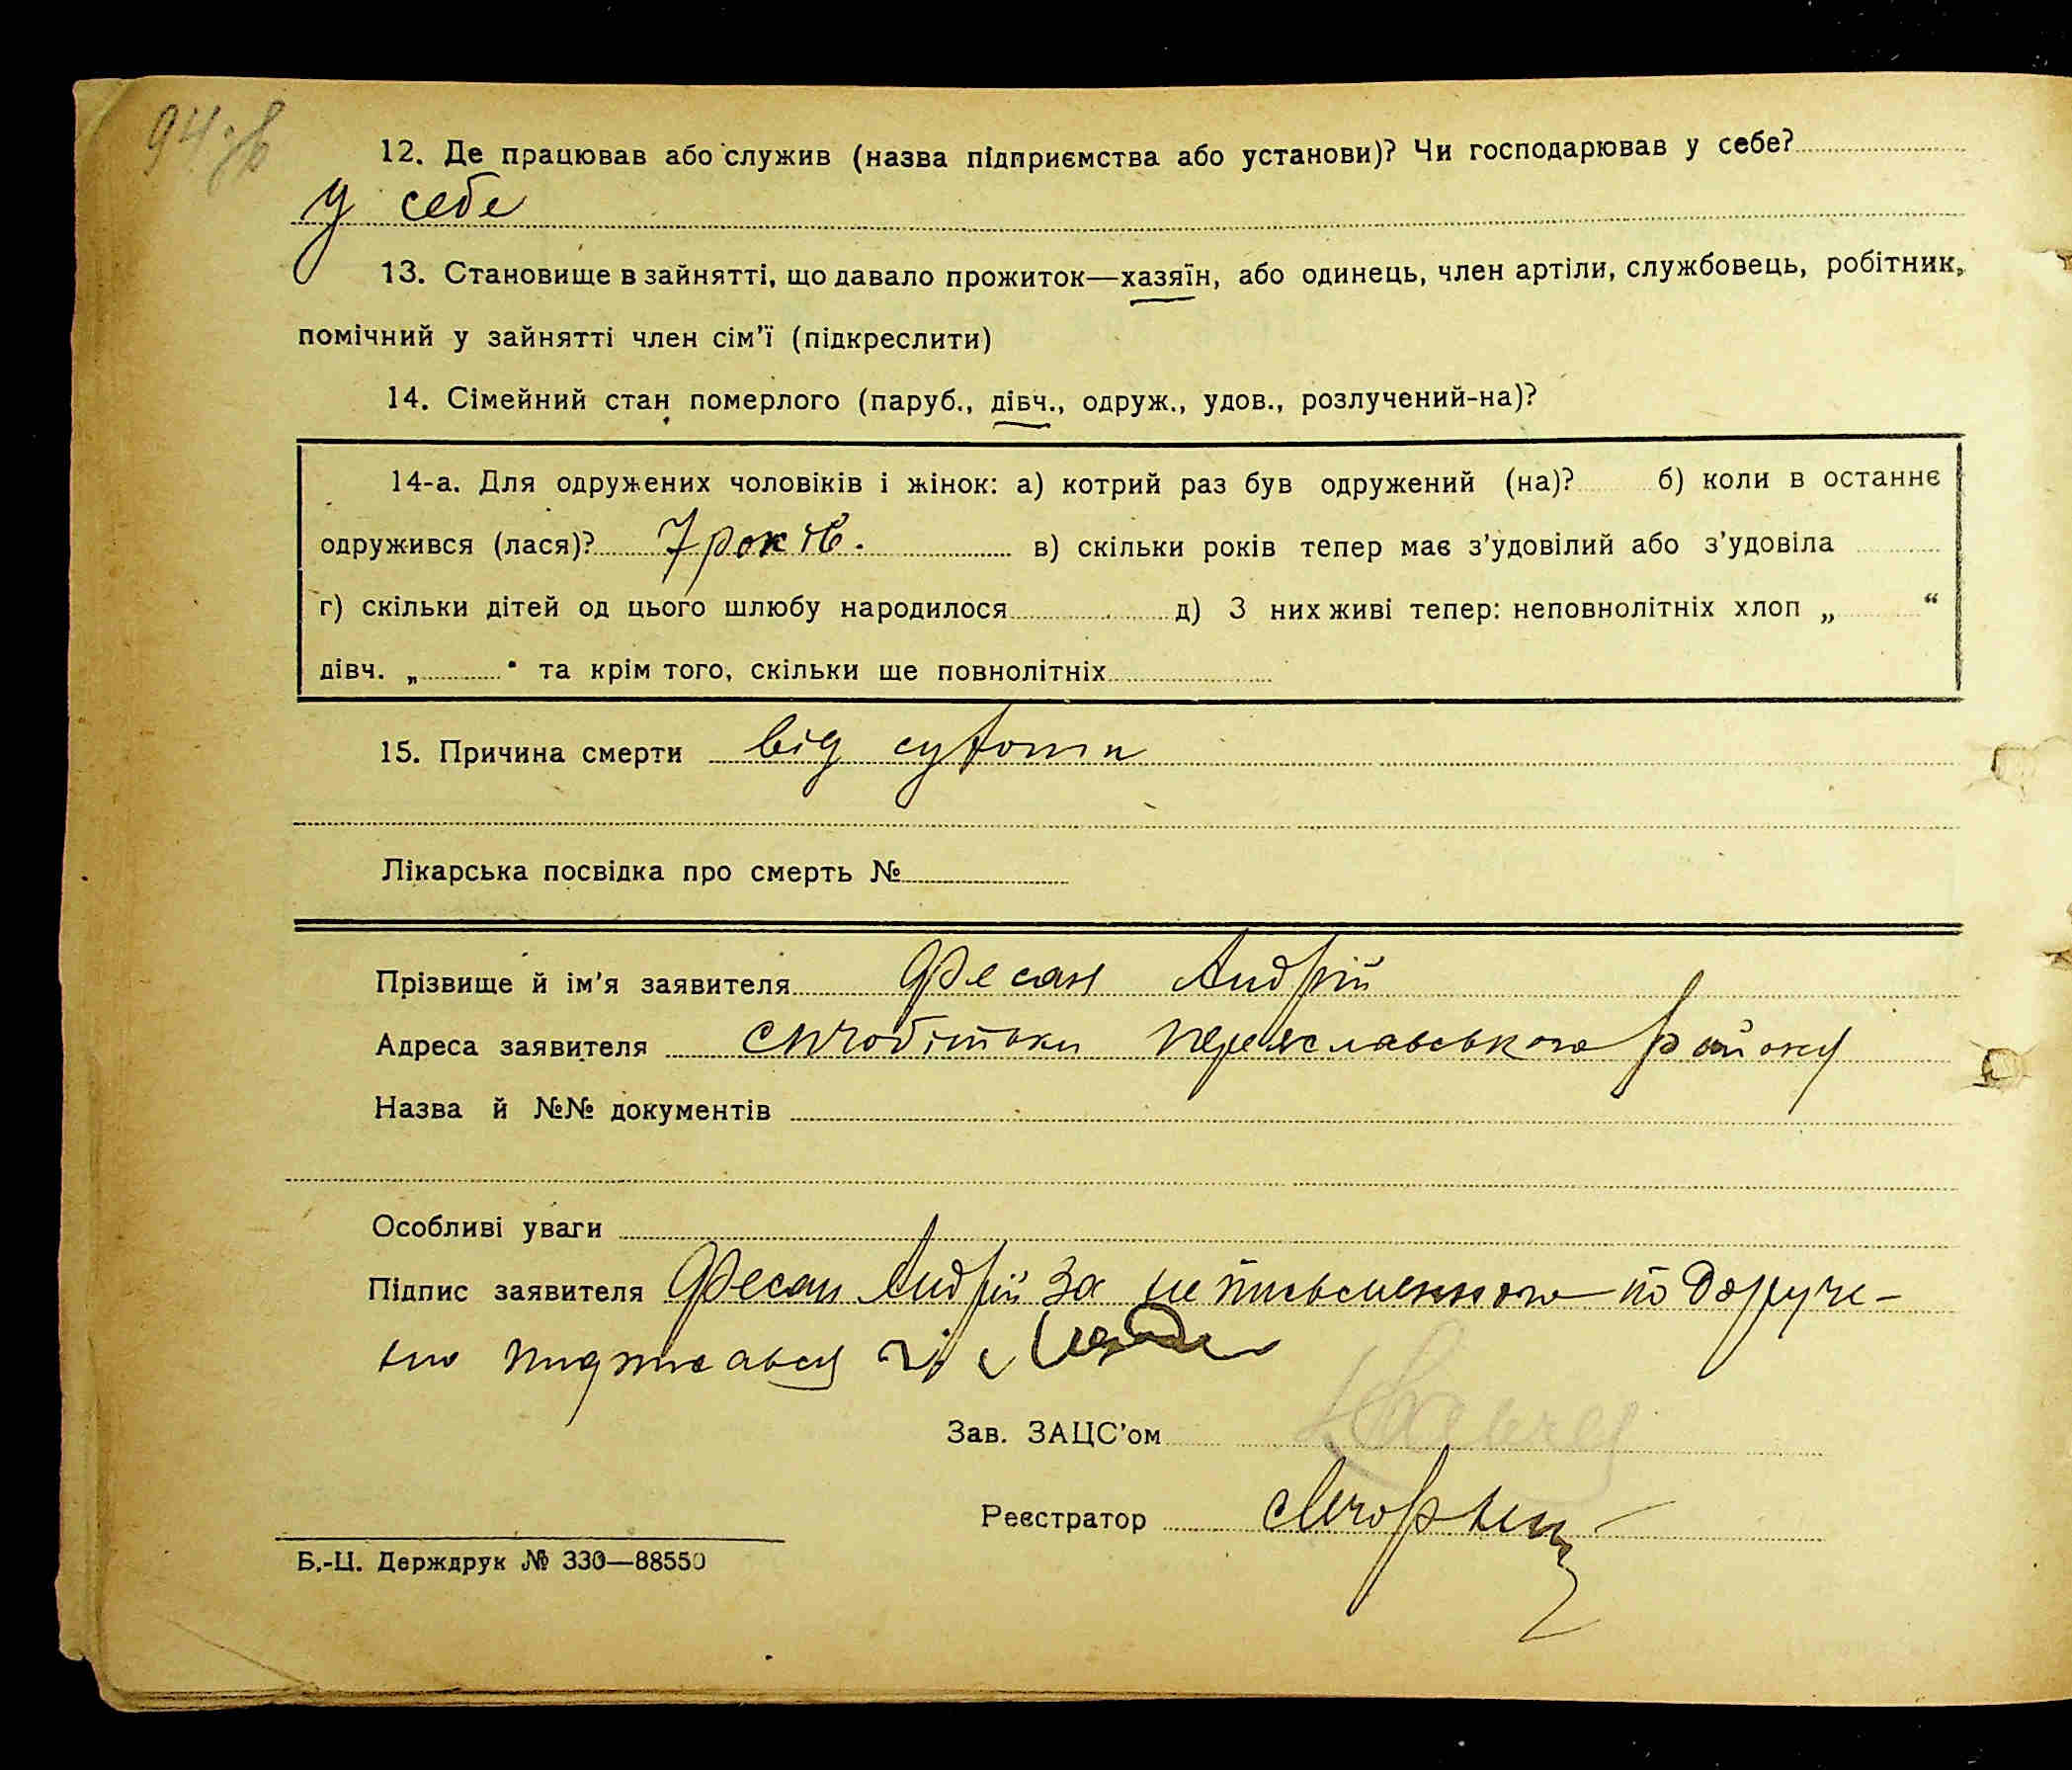 94 зв
12. Де працював або служив (назва підприємства або установи)? Чи господарював у себе?
у себе
13. Становище в зайнятті, що давало прожиток—хазяїн, або одинець, член артіли, службовець, робітник,
помічний у зайнятті член сім'ї (підкреслити)
14. Сімейний стан померлого (паруб., дівч., одруж., удов., розлучений-на)?
14-а. Для одружених чоловіків і жінок: а) котрий раз був одружений (на)? б) коли в останнє
одружився (лася)? 7 років. в) скільки років тепер має з'удовілий або з'удовіла
г) скільки дітей од цього шлюбу народилося д) З них живі тепер: неповнолітніх хлоп „ “
дівч. „ “ та крім того, скільки ще повнолітніх
15. Причина смерти від сухоти
Лікарська посвідка про смерть №
Прізвище й ім'я заявителя Фесан Андрій
Адреса заявителя переяславського району
Назва й №№ документів
Особливі уваги
Підпис заявителя Фесан Андрій За не письменного по доруче-
нню підписався
Зав. ЗАЦС'ом
Реєстратор
Б.-Ц. Держдрук № 330—88550